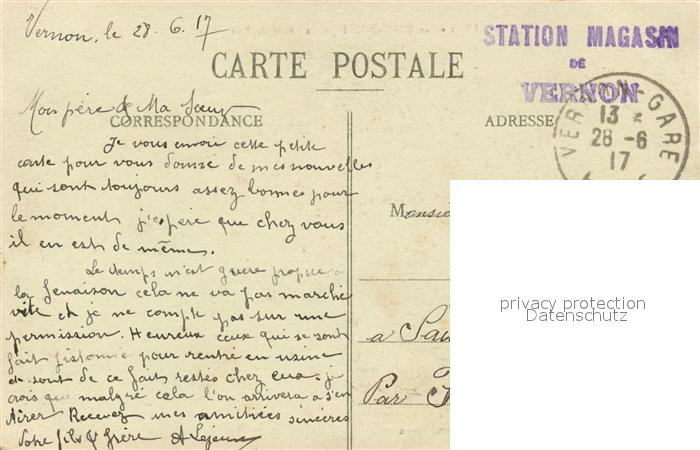 Vernon, le 28. 6. 17
STATION MAGASIN
DE
VERNON
CARTE POSTALE
VERNON-GARE
13 *
28 -6
17
Mon père & Ma Soeur
CORRESPONDANCE
ADRESSE
Je vous envoie cette petite
carte pour vous donné de mes nouvelles
qui sont toujours assez bonnes pour
le moment j'espère que chez vous
il en est de même.
Monsie
Le temps n'est guère propice a
la fenaison cela ne va pas marché
vite et je ne compte pas sur une
permission. Heureux ceux qui se sont
fait pour rentré en usine
et sont de ce fait restés chez eux. je
crois que malgré cela l'on arrivera a s'en
tirer Recevez mes amitiées sincères
Votre fils & frère A Lejeune
a Sau
Par
privacy protection
Datenschutz